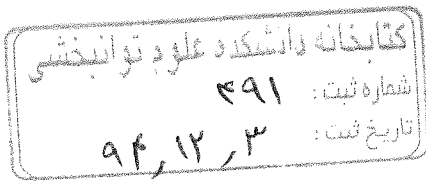 کتابخانه دانشکده علوم توانبخشی
شماره ثبت: ۴۹۱
تاریخ ثبت: ۹۴,۱۲,۳